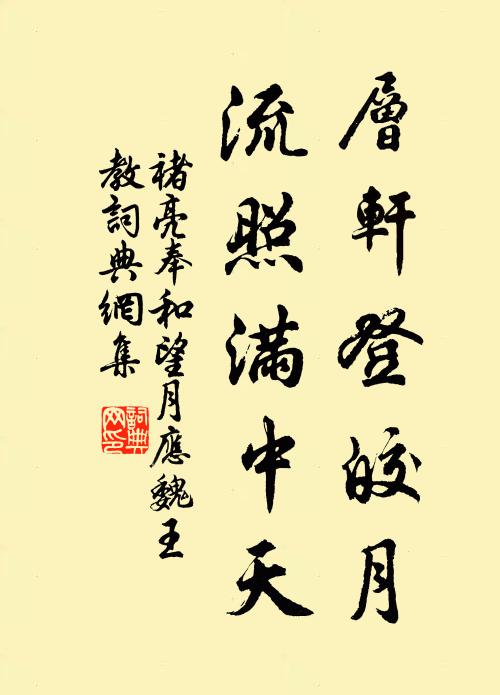 層軒登皎月
流照滿中天
褚亮奉和望月應魏王
教詞典網集
詞典网印